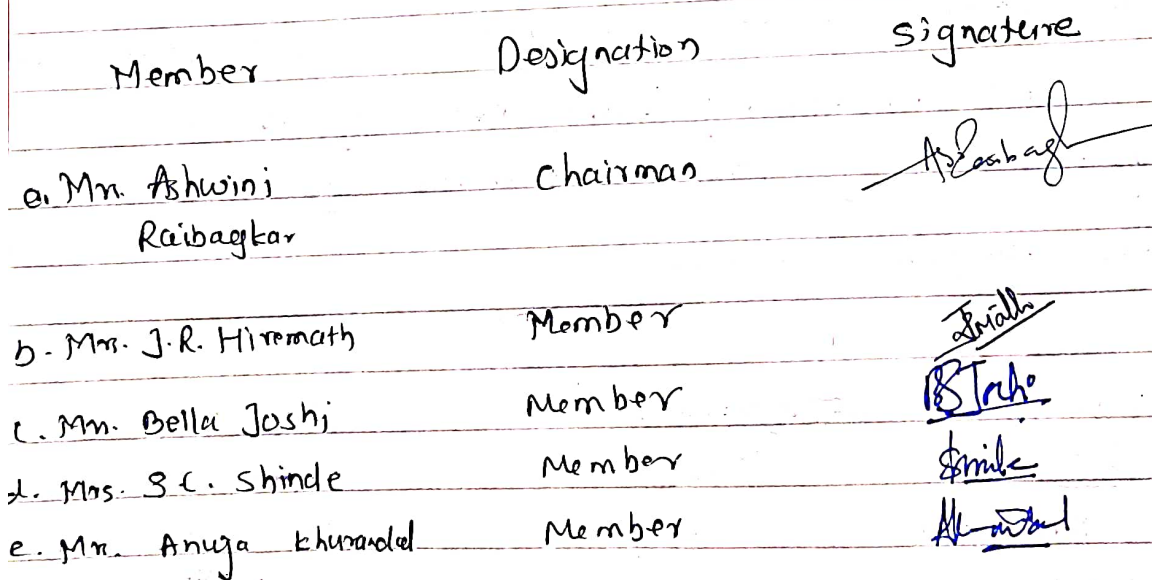 Member Designation Signature
a. Mrs. Ashwini Chairman
Raibagkar
b. Mrs. J.R. Hiremath Member
c. Mrs. Bella Joshi Member
d. Mrs. S C. Shinde Member
e. Mrs. Anuja Member